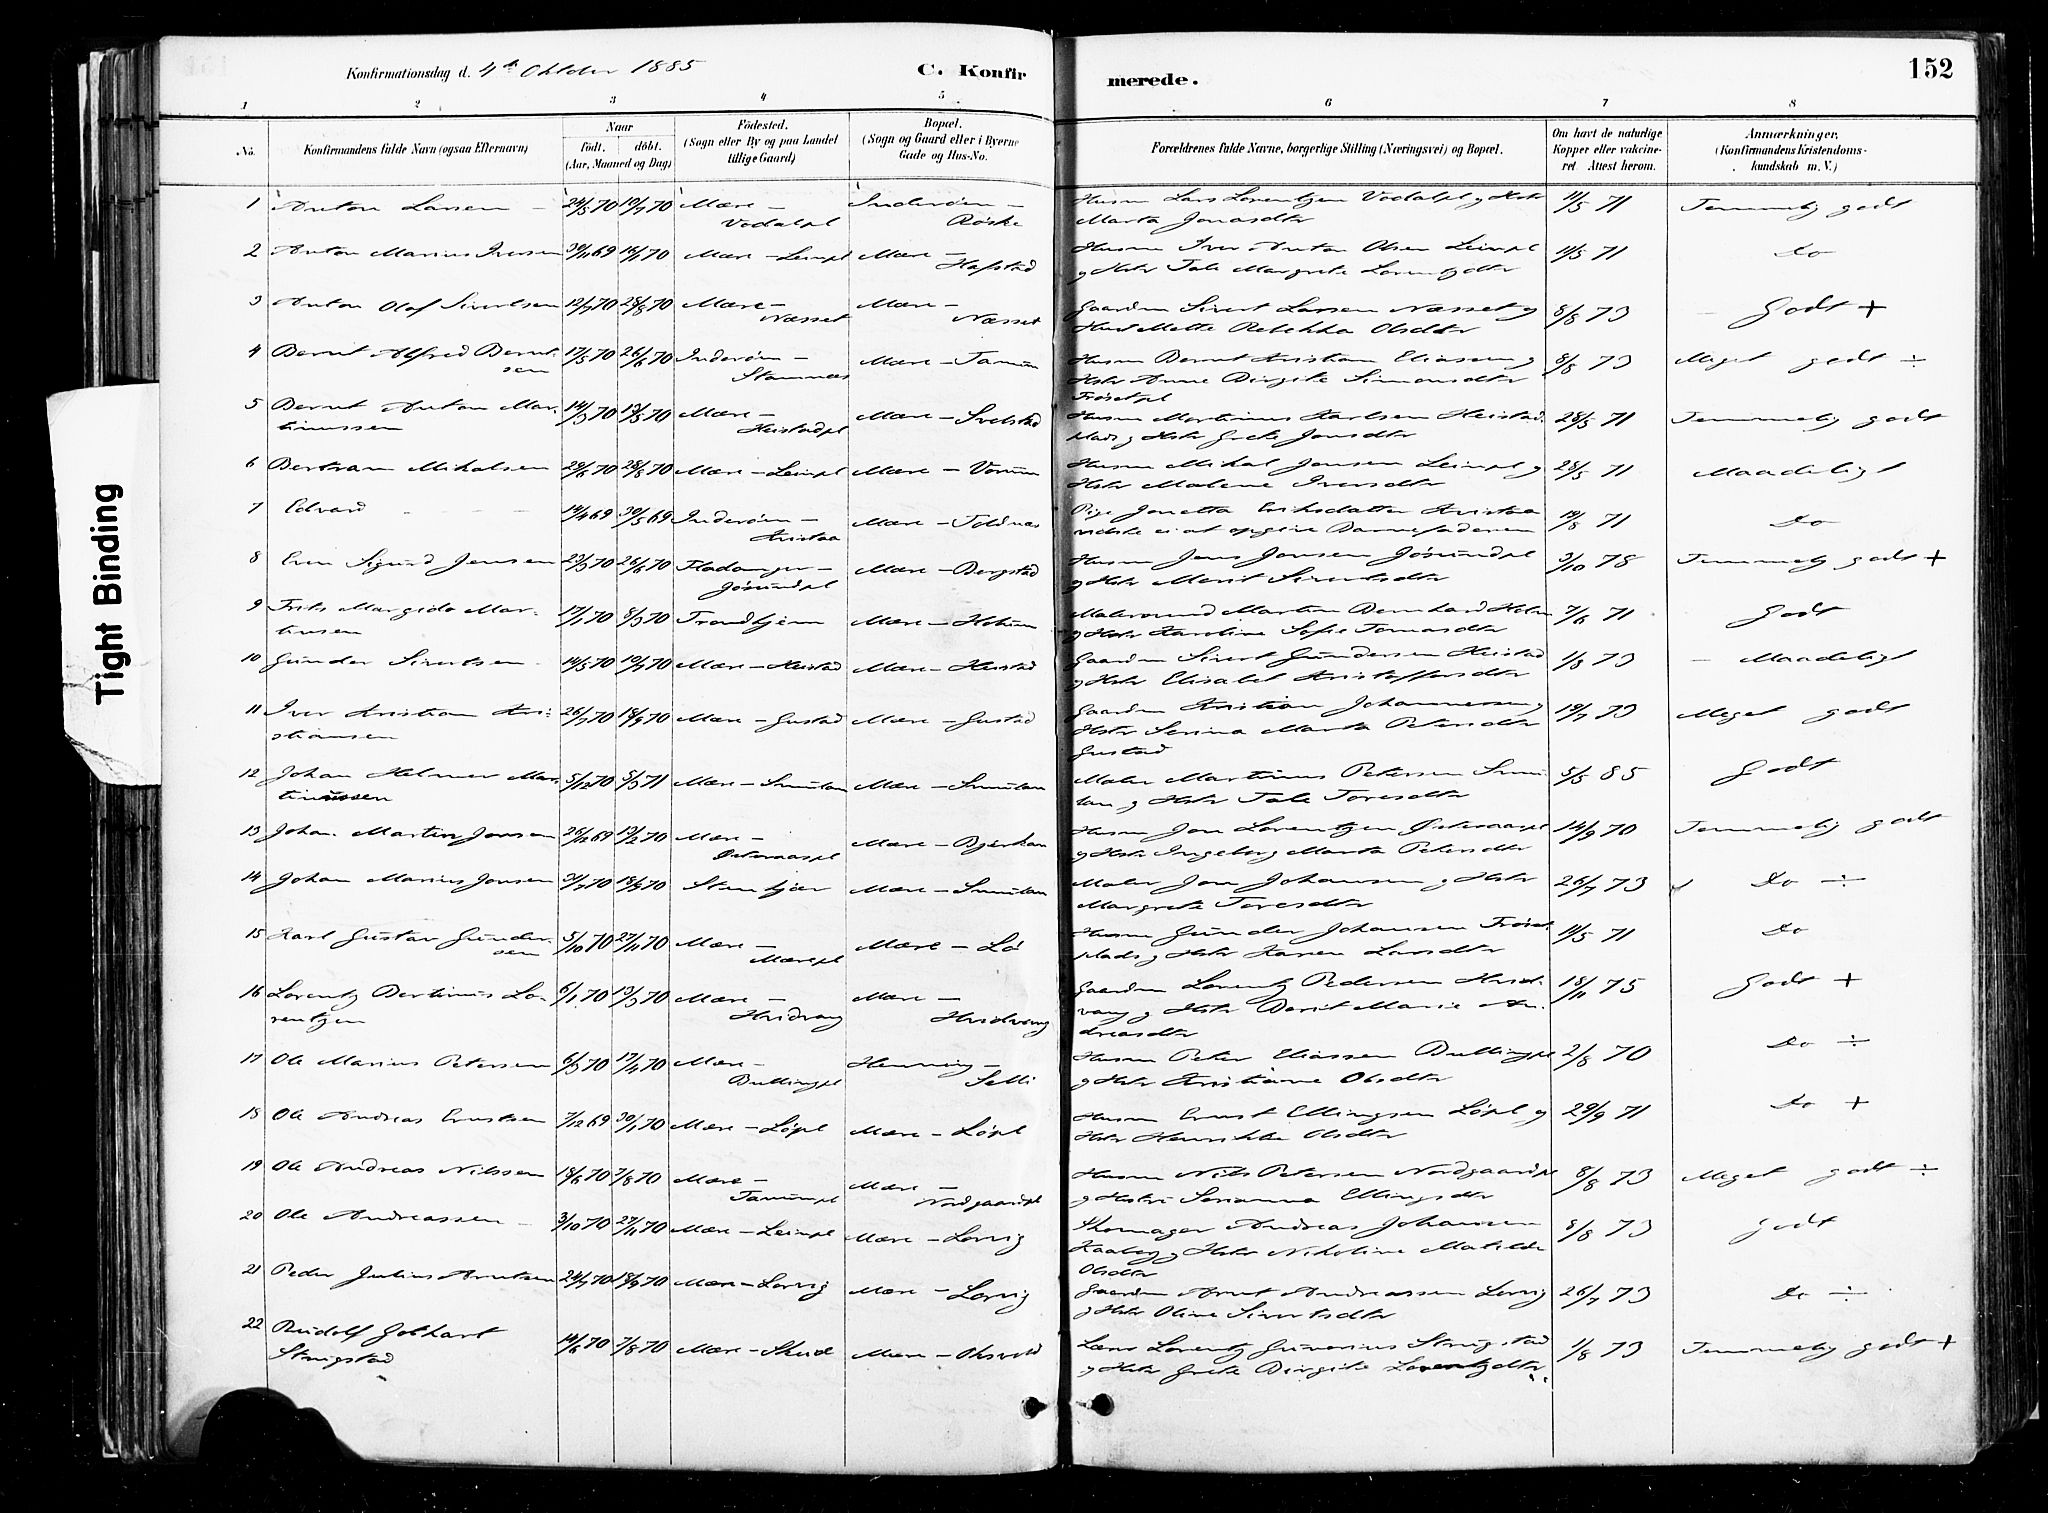 Konfirmationsdag d. 4de Oktober 1885 C. Konfir merede. 152
1 2 3 4 5 6 7 8
No. Konfirmandens fulde Navn (ogsaa Efternavn) Naar født. døbt. (Aar, Maaned og Dag) Fødested. (Sogn eller By og paa Landet tillige Gaard) Bopæl. (Sogn og Gaard eller i Byerne Gade og Hus-No. Forældrenes fulde Navne, borgerlige Stilling (Næringsvei) og Bopæl. Om havt de naturlige Kopper eller vakcineret. Attest herom. Anmærkninger. (Konfirmandens Kristendomskundskab m. V.)
1 Anton Larsen 24/5 70 10/7 70 Mære – Vodalpl Inderøen – Røske Husm Lars Lorentzen Vodalpl og Hstr Marta Jonasdtr 11/5 71 Temmelig godt
2 Anton Marius Iversen 30/11 69 16/1 70 Mære – Leinpl Mære – Hafstad Husm Iver Anton Olsen Leinpl og Hstr Tale Margrete Lorentzdtr 11/5 71 Do
3 Anton Olof Sivertsen 12/7 70 28/8 70 Mære – Næsset Mære – Næsset Gaardm Sivert Larsen Næsset og Hustr Mette Rebekka Olsdtr 8/8 73 Godt +
4 Bernt Alfred Berntsen 17/5 70 26/6 70 Inderøen – Stamnæs Mære – Tanum Husm Bernt Kristian Eliassen og Hstr Anne Birgite Simonsdtr Frøsetpl 8/8 73 Meget godt ÷
5 Bernt Anton Martinussen 14/3 70 13/5 70 Mære – Heistadpl Mære – Svelstad Husm Martinus Karlsen Heistadplads og Hstr Grete Jonsdtr 28/5 71 Temmelig godt
6 Bertram Mikalsen 29/6 70 28/8 70 Mære – Leinpl Mære – Vanum Husm Mikal Jonsen Leinpl og Hstr Malene Iversdtr 28/5 71 Maadeligt
7 Edvard 14/4 69 30/5 69 Inderøen – Kristaa Mære – Toldnæs Pige Jonetta Eriksdatter Kristaa vidste ei at opgive Barnefaderen 19/8 71 Do
8 Even Sigurd Jensen 23/3 70 26/6 70 Fladanger – Jøsundpl Mære – Bergstad Husm Jens Jonsen Jøsundpl og Hstr Merit Sivertsdtr 3/10 78 Temmelig godt +
9 Frits Margido Martinsen 17/1 70 8/3 70 Trondhjem Mære – Holum Malersvend Martin Bernhard Holm og Hstr Karoline Sofie Tomasdtr 7/6 71 Godt
10 Gunder Sivertsen 14/5 70 10/7 70 Mære – Heistad Mære – Heistad Gaardm Sivert Gundersen Heistad og Hstr Elisabet Kristoffersdtr 1/8 73 Maadeligt
11 Iver Kristian Kristiansen 26/7 70 18/9 70 Mære – Gustad Mære – Gustad Gaardm Kristian Johannesen og Hstr Serina Marta Petersdtr Gustad 19/7 73 Meget godt
12 Johan Helmer Martinussen 5/12 70 5/3 71 Mære – Smulan Mære – Smulan Maler Martinus Petersen Smulan og Hstr Tale Toresdtr 5/5 85 Godt
13 Johan Martin Jonsen 26/12 69 13/2 70 Mære – Østeraaspl Mære – Bjerkan Husm Jon Lorentzen Østeraaspl og Hstr Ingeborg Marta Petersdtr 14/9 70 Temmelig godt
14 Johan Marius Jonsen 31/7 70 18/9 70 Stenkjær Mære – Smulan Maler Jon Johansen og Hstr Margrete Toresdtr 26/7 73 Do ÷
15 Karl Gustav Gundersen 5/10 70 27/11 70 Mære – Mærepl Mære – Lø Husm Gunder Johansen Frøsetplads og Hstr Karen Larsdtr 11/5 71 Do
16 Lorentz Bertinus Lorentzen 6/1 70 13/3 70 Mære – Hvidvang Mære – Hvidvang Gaardm Lorentz Pedersen Hvidvang og Hstr Berit Marie Andreasdtr 18/11 75 Godt +
17 Ole Marius Petersen 6/3 70 17/4 70 Mære – Bullingpl Henning – Selli Husm Peter Eliassen Bullingpl og Hstr Kristiane Olsdtr 2/8 70 Do ÷
18 Ole Andreas Ernstsen 7/12 69 30/1 70 Mære – Løpl Mære – Løpl Husm Ernst Ellingsen Løpl og Hstr Henrikke Olsdtr 29/9 71 Do +
19 Ole Andreas Nilssen 18/6 70 7/8 70 Mære – Tanumpl Mære – Nordgaardpl Husm Nils Petersen Nordgaardpl og Hstr Serianna Ellingsdtr 8/8 73 Meget godt ÷
20 Ole Andreassen 3/10 70 27/11 70 Mære – Leinpl Mære – Lorvig Skomager Andreas Johansen Kaaberg og Hstr Nikoline Matilde Olsdtr 8/8 73 Godt
21 Peder Julius Arntsen 24/7 70 18/9 70 Mære – Lorvig Mære – Lorvig Gaardm Arnt Andreassen Lorvig og Hstr Oline Sivertsdtr 26/7 73 Do ÷
22 Rudolf Gothart Strugstad 14/6 70 7/8 70 Mære – Skeid Mære – Oksvold Lærer Lorentz Gunerius Strugstad og Hstr Grete Birgite Lorentzdtr 1/8 73 Temmelig godt +
Tight Binding